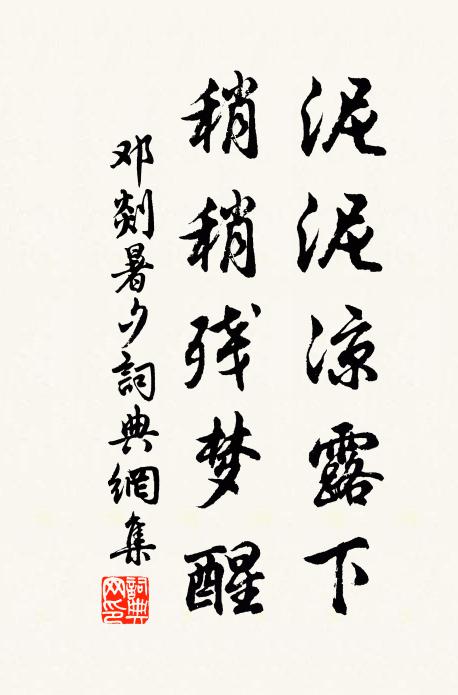 泥泥凉露下
稍稍残梦醒
邓剡暑夕词典網集
詞典
网印